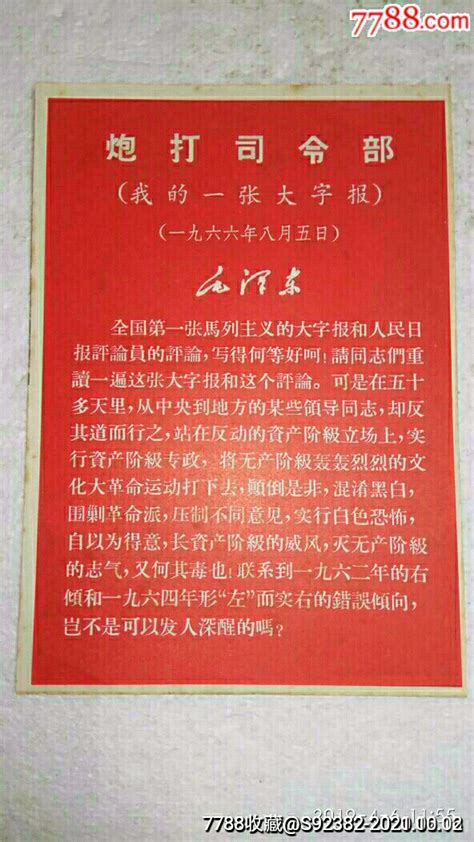 7788.com
炮打司令部
(我的一张大字报)
(一九六六年八月五日)
毛泽东
全国第一张馬列主义的大字报和人民日
报評論員的評論,写得何等好呵!請同志們重
讀一遍这张大字报和这个評論。可是在五十
多天里,从中央到地方的某些領导同志,却反
其道而行之,站在反动的資产阶級立场上,实
行資产阶級专政,将无产阶級轰轰烈烈的文
化大革命运动打下去,顛倒是非,混淆黑白,
围剿革命派,压制不同意见,实行白色恐怖,
自以为得意,长資产阶級的威风,灭无产阶級
的志气,又何其毒也!联系到一九六二年的右
傾和一九六四年形“左”而实右的錯誤傾向,
豈不是可以发人深醒的嗎?
7788收藏@S92382-2020.10.02